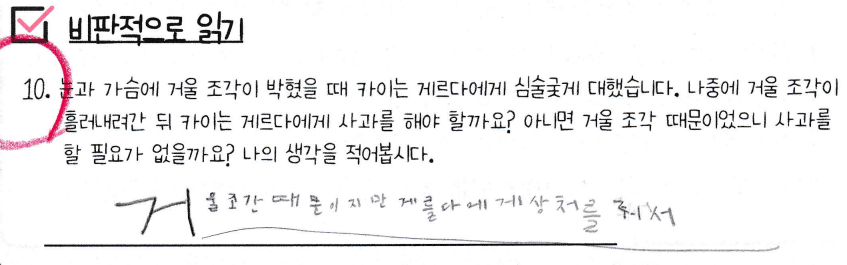 비판적으로 읽기
10. 눈과 가슴에 거울 조각이 박혔을 때 카이는 게르다에게 심술궂게 대했습니다. 나중에 거울 조각이
흘러내려간 뒤 카이는 게르다에게 사과를 해야 할까요? 아니면 거울 조각 때문이었으니 사과를
할 필요가 없을까요? 나의 생각을 적어봅시다.
거울조간 때문이지만 게르다에게 상처를 줘서